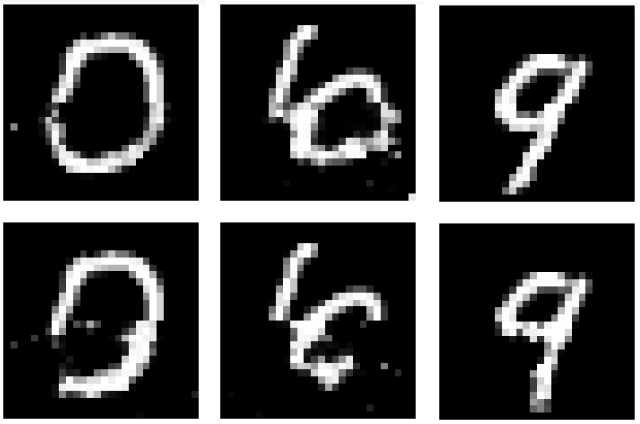 0 6 9
6 9